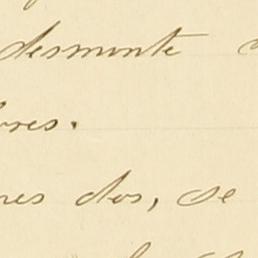 desmonte
res.
res dos, se